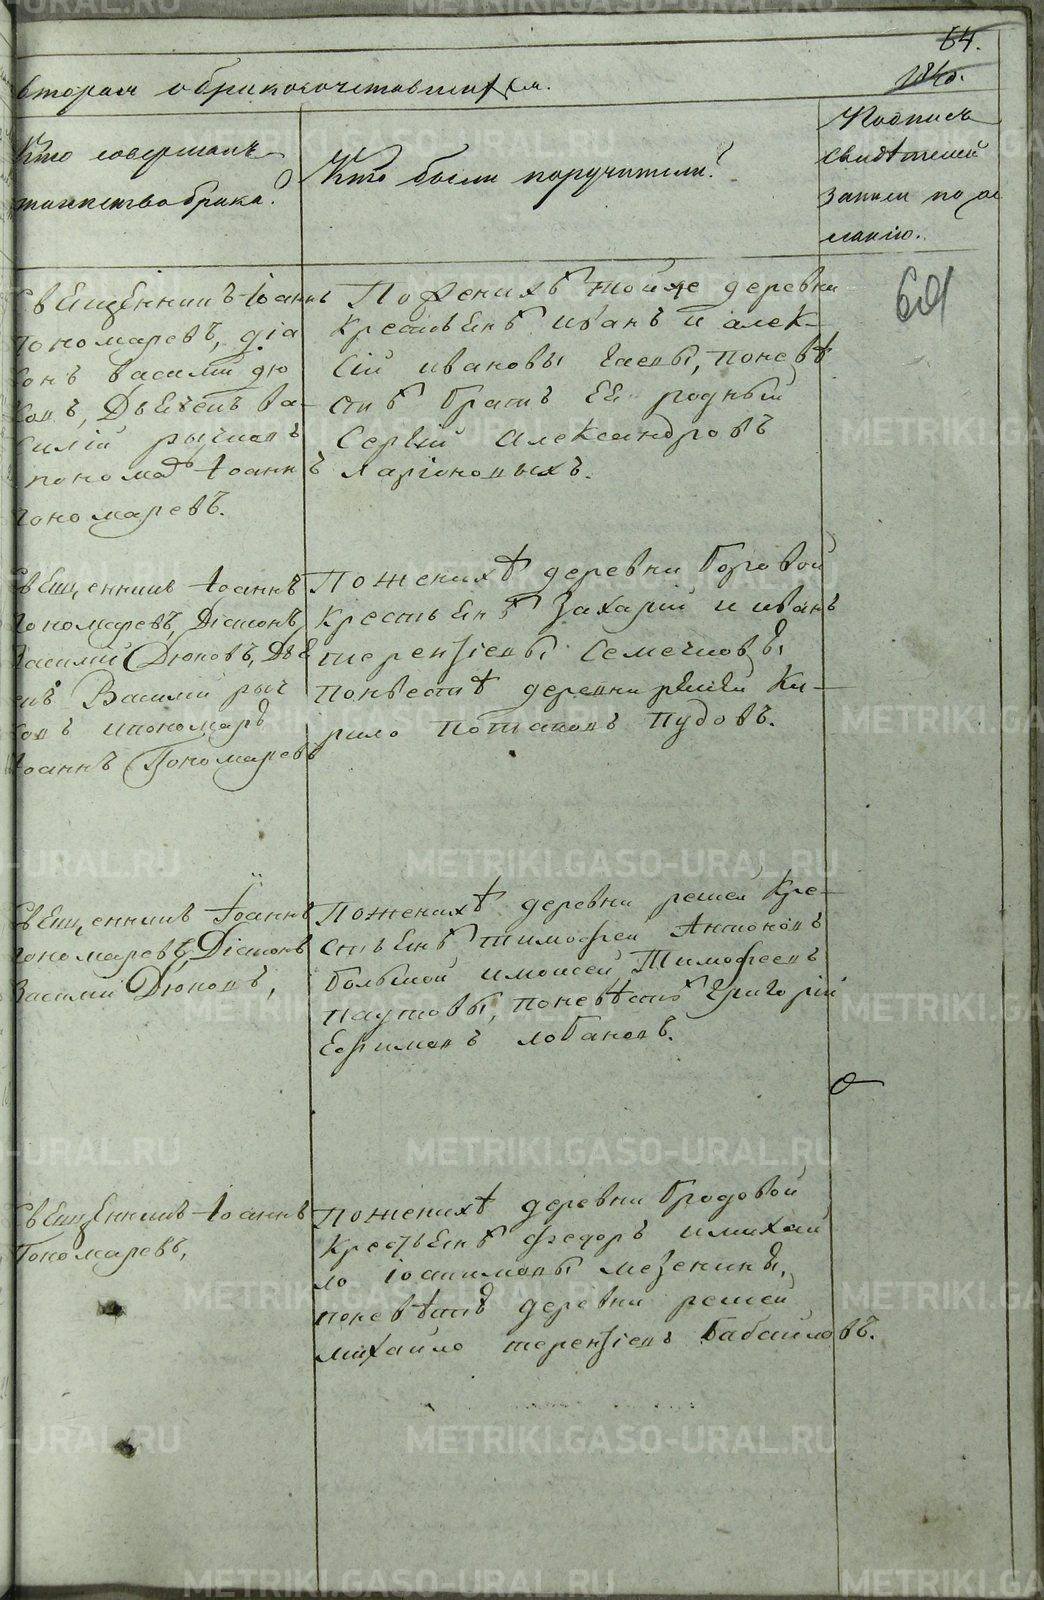 64.
вторая о бракосочетавшихся.
Кто совершалъ
таинство брака?
Кто были поручители?
Подпись
свидѣтелей
записи по же
ланію.
64
Священникъ Іоаннъ
Пономаревъ, діа
конъ Василій Дю
ковъ, Дьячекъ Ва-
силій рычковъ
пономарь Іоаннъ
Пономаревъ.
По женихѣ тойже деревни
крестьянѣ иванъ и алек-
сій ивановы, по невѣ
стѣ братъ ея родный
Сергій Александровъ
Ларіоновыхъ.
Священникъ Іоаннъ
Пономаревъ, Діаконъ
Василій Дюковъ, Дья
чекъ Василій рыч
ковъ и пономарь
Іоаннъ Пономаревъ
По женихѣ деревни Боровой
крестьянѣ Захарій и иванъ
терентіевы Семечковы,
по невѣстѣ деревни решей Ки-
рило Потаповъ Пудовъ.
Священникъ Іоаннъ
Пономаревъ, Діаконъ
Василій Дюковъ,
По женихѣ деревни решей Кре-
стьянѣ тимофей Антоновъ
большой и моисей Тимофеевъ
паутовы, по невѣстѣ григорій
Ефимовъ лобановъ.
Священникъ Іоаннъ
Пономаревъ,
По женихѣ деревни Бродовой
крестьянѣ Федоръ и михай
ло іоакимовы мезенины,
по невѣстѣ деревни решей
михайло терентіевъ Бабайловъ.
METRIKI.GASO-URAL.RU